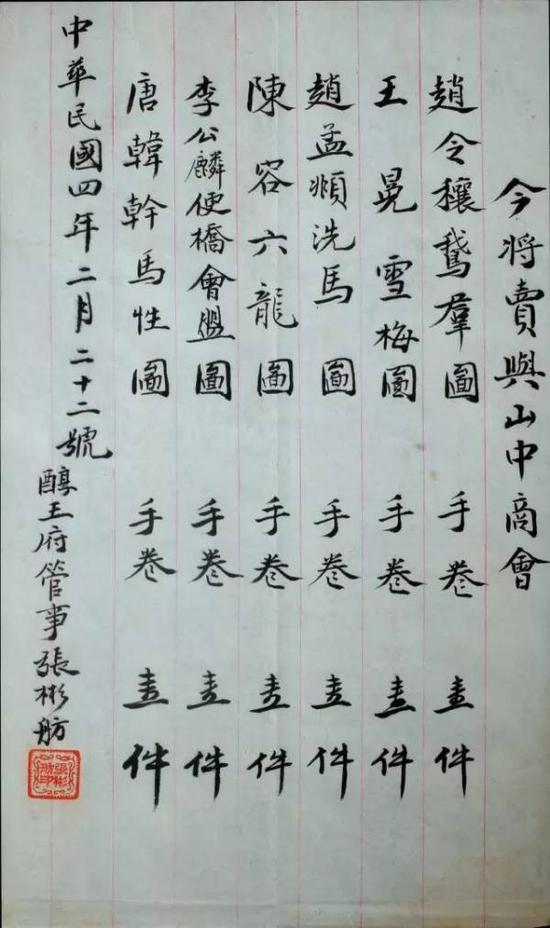 今將賣與山中商會
趙令穰鵞羣圖 手卷 壹件
王晃雪梅圖 手卷 壹件
趙孟頫洗馬圖 手卷 壹件
陳容六龍圖 手卷 壹件
李公麟便橋會盟圖 手卷 壹件
唐韓幹馬性圖 手卷 壹件
中華民國四年二月二十二號
醇王府管事張彬舫
張彬舫印